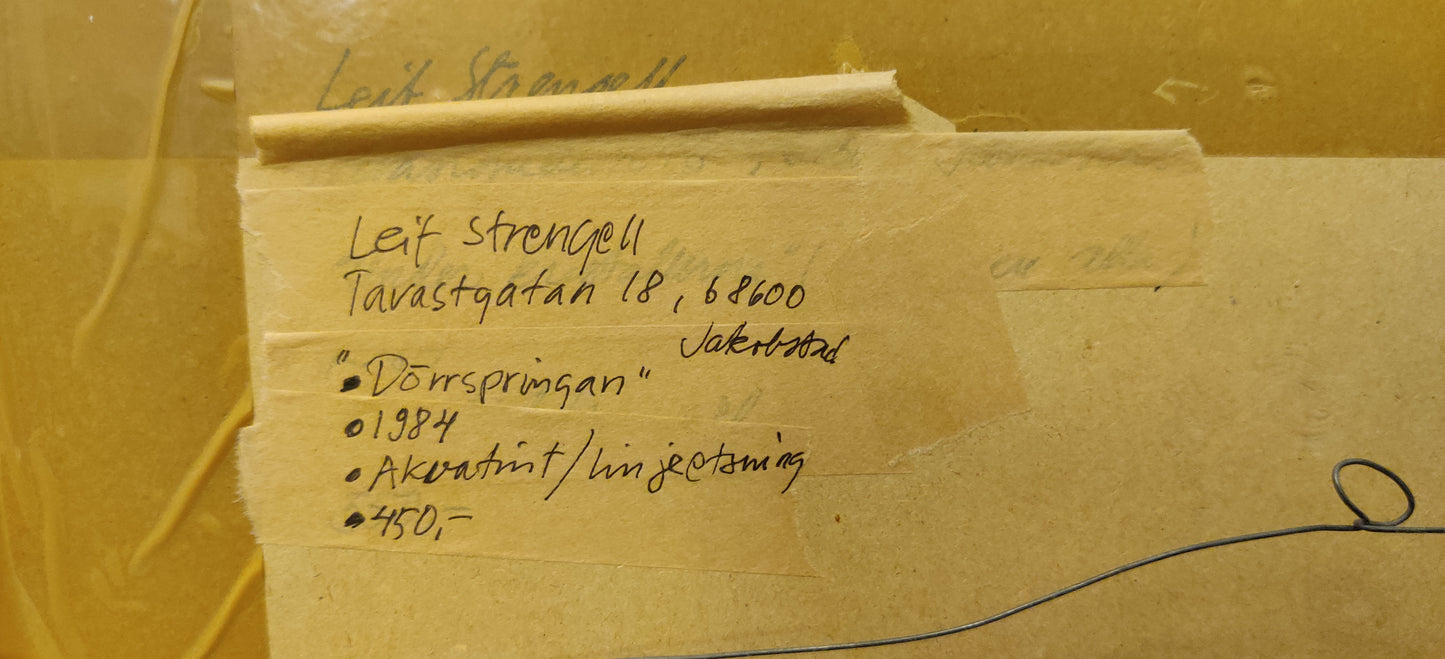 Leif Strengell
Leif Strengell
Tavastgatan 18, 68600
Jakobstad
"• Dörrspringan"
• 1984
• Akvatint/linjeetsning
• 450,-